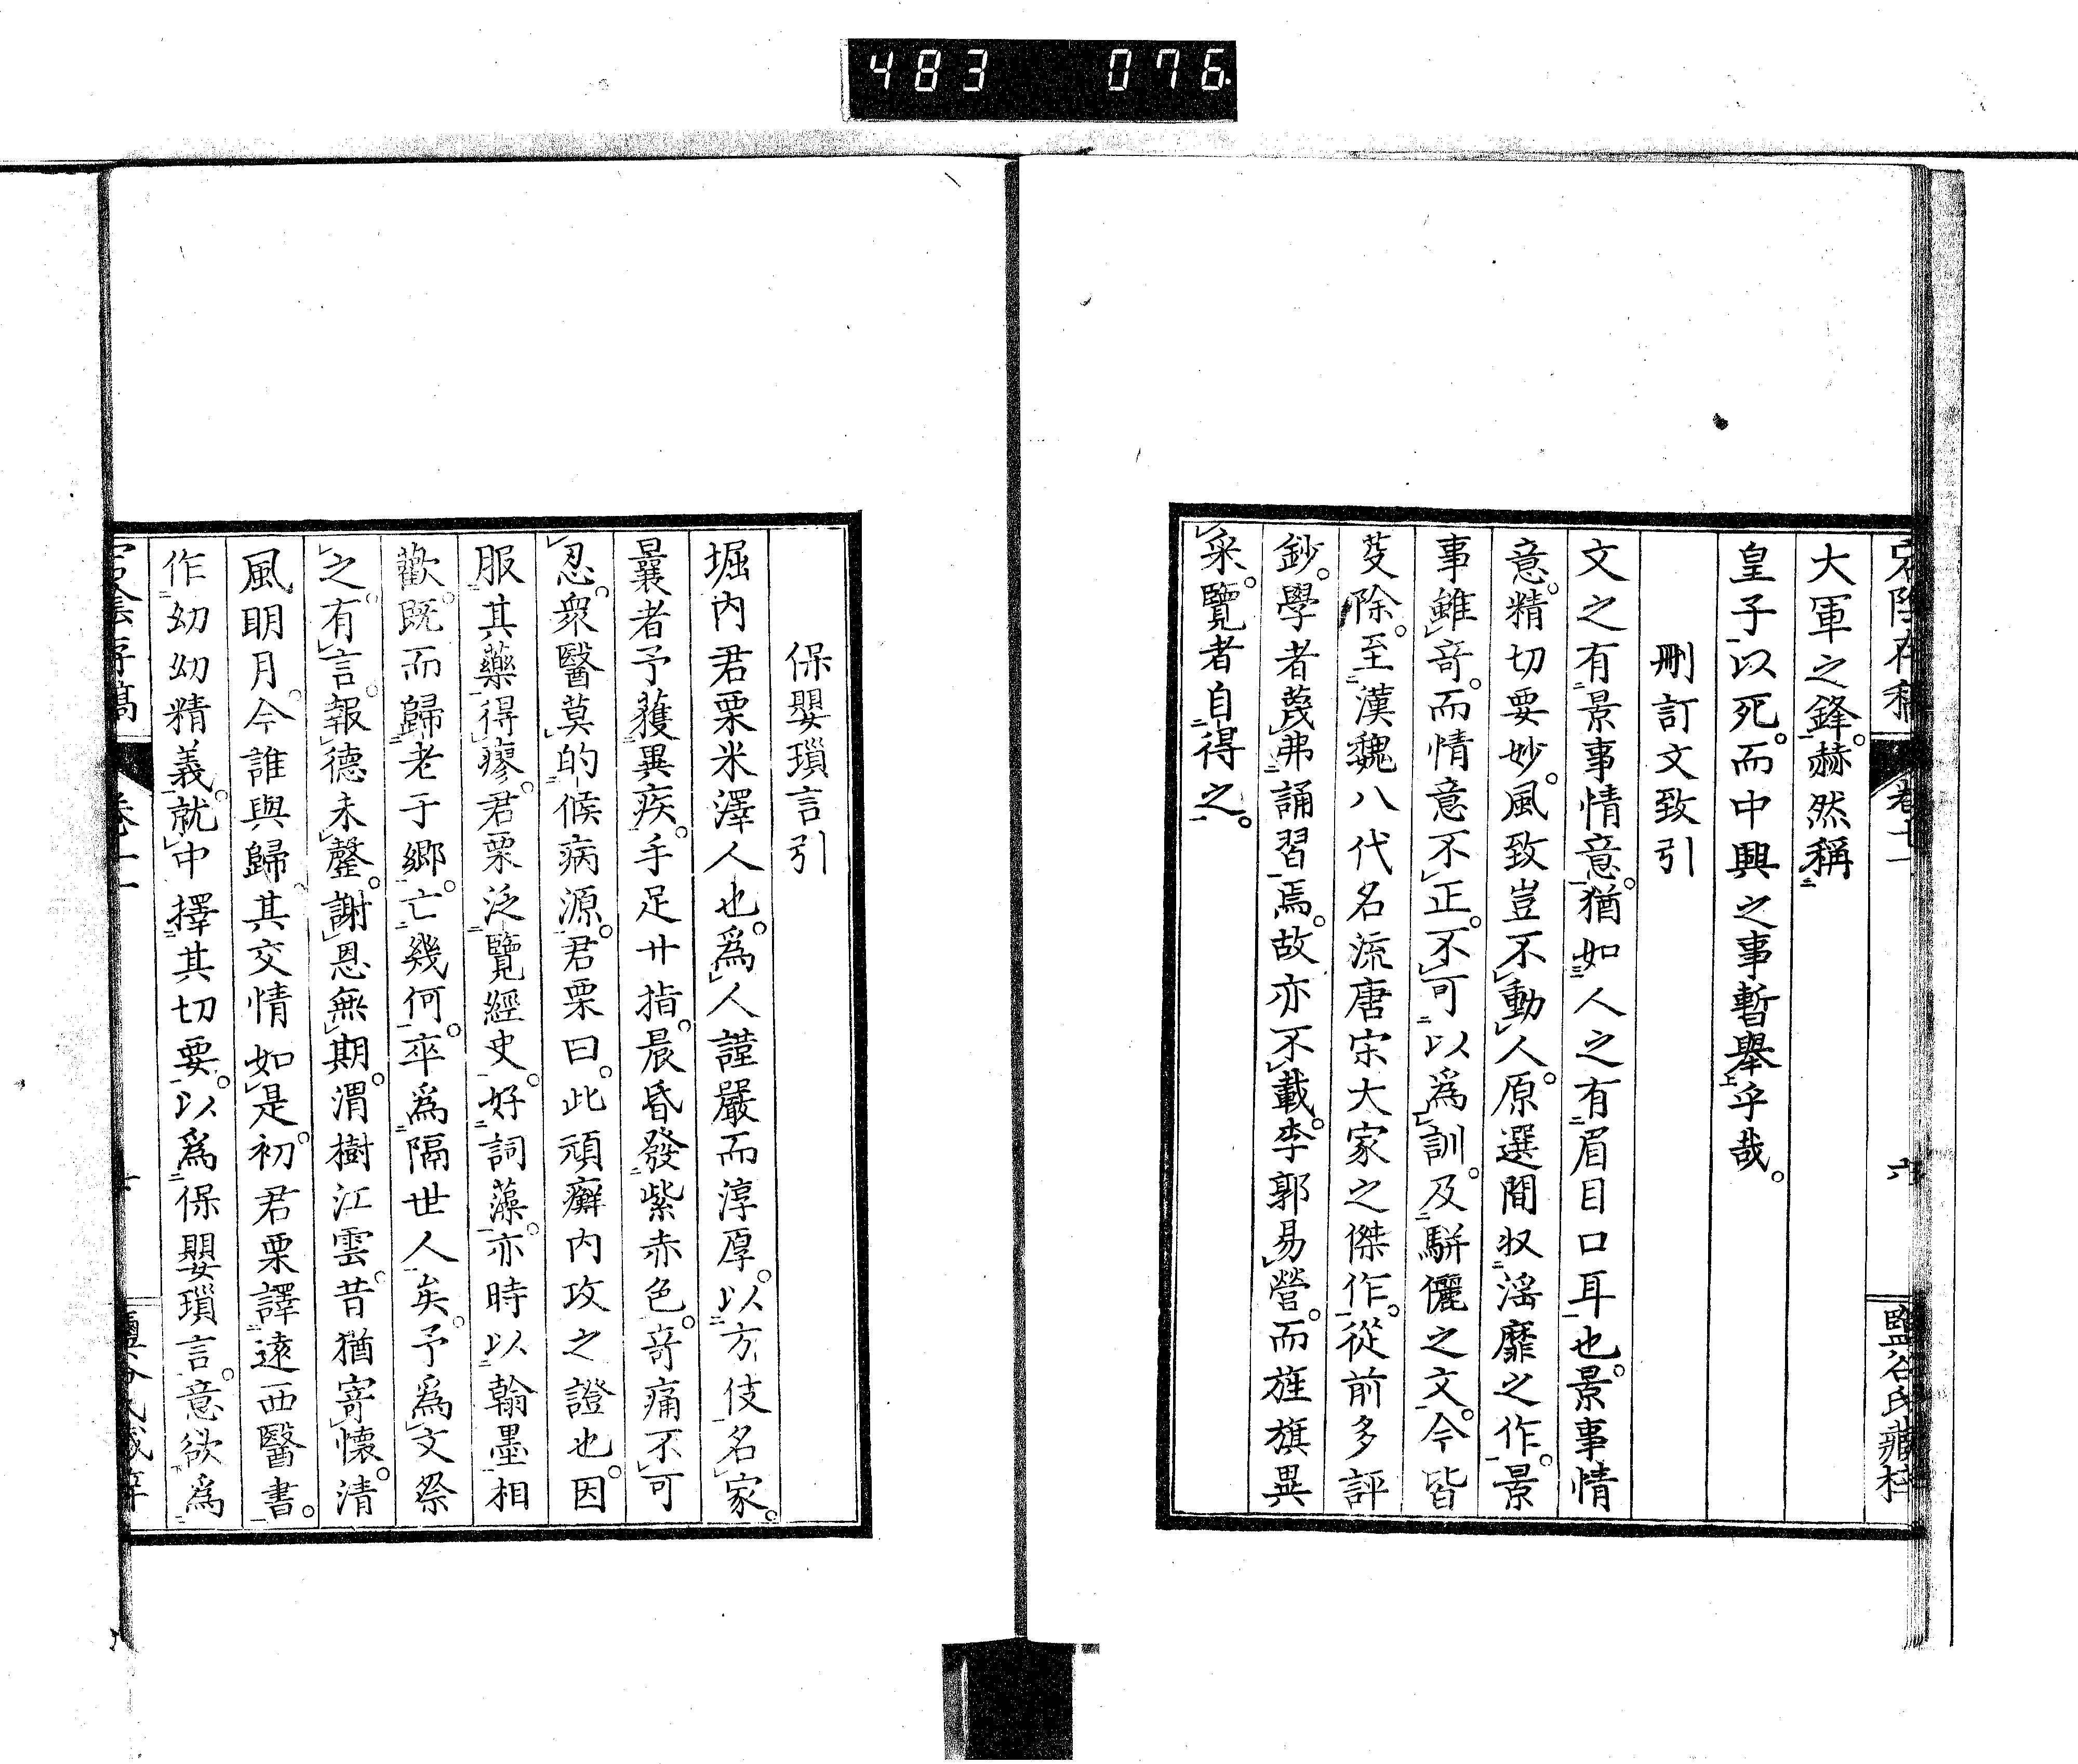 483 076
大軍之鋒。赫然稱
皇子以死。而中興之事暫舉乎哉。
刪訂文致引
文之有景事情意。猶如人之有眉目口耳也。景事情
意。精切要妙。風致豈不動人。原選間收淫靡之作。景
事雖奇。而情意不正。不可以爲訓。及駢儷之文。今皆
芟除。至漢魏八代名流唐宋大家之傑作。從前多評
鈔。學者蔑弗誦習焉。故亦不載。李郭易營。而旌旗異
采。覽者自得之。
卷十一
六
鹽谷氏藏梓
保嬰瑣言引
堀内君栗米澤人也。爲人謹嚴而淳厚。以方伎名家。
曩者予獲異疾。手足廾指。晨昏發紫赤色。奇痛不可
忍。衆醫莫的候病源。君栗曰。此頑癬内攻之證也。因
服其藥得瘳。君栗泛覽經史。好詞藻。亦時以翰墨相
歡。既而歸老于郷。亡幾何。卒爲隔世人矣。予爲文祭
之。有言。報德未罄。謝恩無期。渭樹江雲。昔猶寄懷。清
風明月。今誰與歸。其交情如是。初君栗譯遠西醫書。
作幼幼精義。就中擇其切要。以爲保嬰瑣言。意欲爲